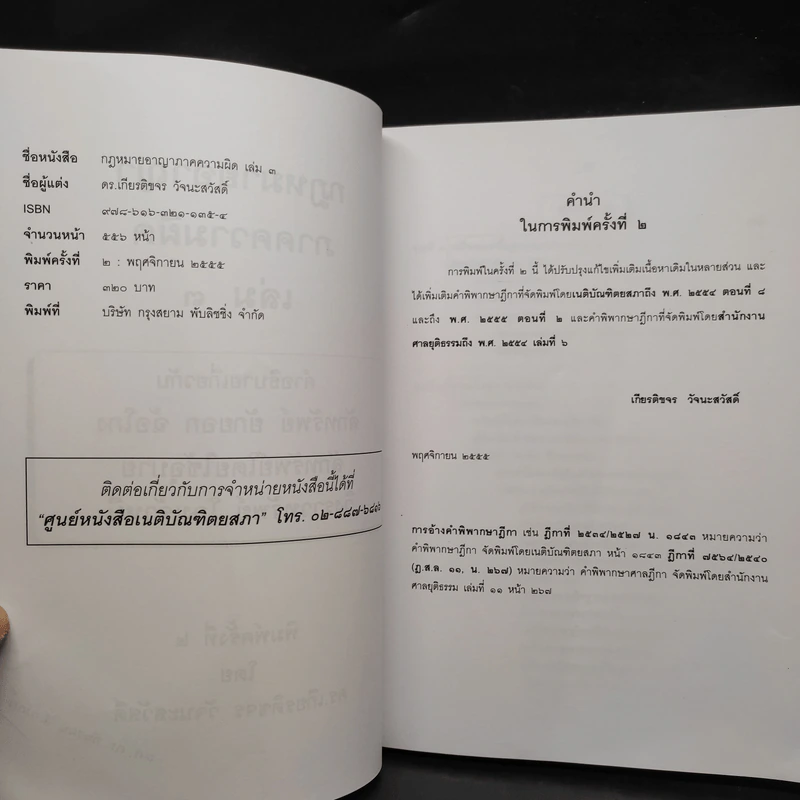 ชื่อหนังสือ กฎหมายอาญาภาคความผิด เล่ม ๓
ชื่อผู้แต่ง ดร.เกียรติขจร วัจนะสวัสดิ์
ISBN ๙๗๘-๖๑๖-๓๒๑-๑๓๕-๔
จำนวนหน้า ๕๕๖ หน้า
พิมพ์ครั้งที่ ๒ : พฤศจิกายน ๒๕๕๕
ราคา ๓๒๐ บาท
พิมพ์ที่ บริษัท กรุงสยาม พับลิชชิ่ง จำกัด
ติดต่อเกี่ยวกับการจำหน่ายหนังสือนี้ได้ที่
"ศูนย์หนังสือเนติบัณฑิตยสภา" โทร. ๐๒-๘๘๗-๖๘๑๖
คำนำ
ในการพิมพ์ครั้งที่ ๒
การพิมพ์ในครั้งที่ ๒ นี้ ได้ปรับปรุงแก้ไขเพิ่มเติมเนื้อหาเดิมในหลายส่วน และ
ได้เพิ่มเติมคำพิพากษาฎีกาที่จัดพิมพ์โดยเนติบัณฑิตยสภาถึง พ.ศ. ๒๕๕๔ ตอนที่ ๘
และถึง พ.ศ. ๒๕๕๕ ตอนที่ ๒ และคำพิพากษาฎีกาที่จัดพิมพ์โดยสำนักงาน
ศาลยุติธรรมถึง พ.ศ. ๒๕๕๔ เล่มที่ ๖
เกียรติขจร วัจนะสวัสดิ์
พฤศจิกายน ๒๕๕๕
การอ้างคำพิพากษาฎีกา เช่น ฎีกาที่ ๒๕๓๔/๒๕๒๗ น. ๑๘๔๓ หมายความว่า
คำพิพากษาฎีกา จัดพิมพ์โดยเนติบัณฑิตยสภา หน้า ๑๘๔๓ ฎีกาที่ ๗๕๖๔/๒๕๔๐
(ฎ.ส.ล. ๑๑, น. ๒๖๗) หมายความว่า คำพิพากษาศาลฎีกา จัดพิมพ์โดยสำนักงาน
ศาลยุติธรรม เล่มที่ ๑๑ หน้า ๒๖๗